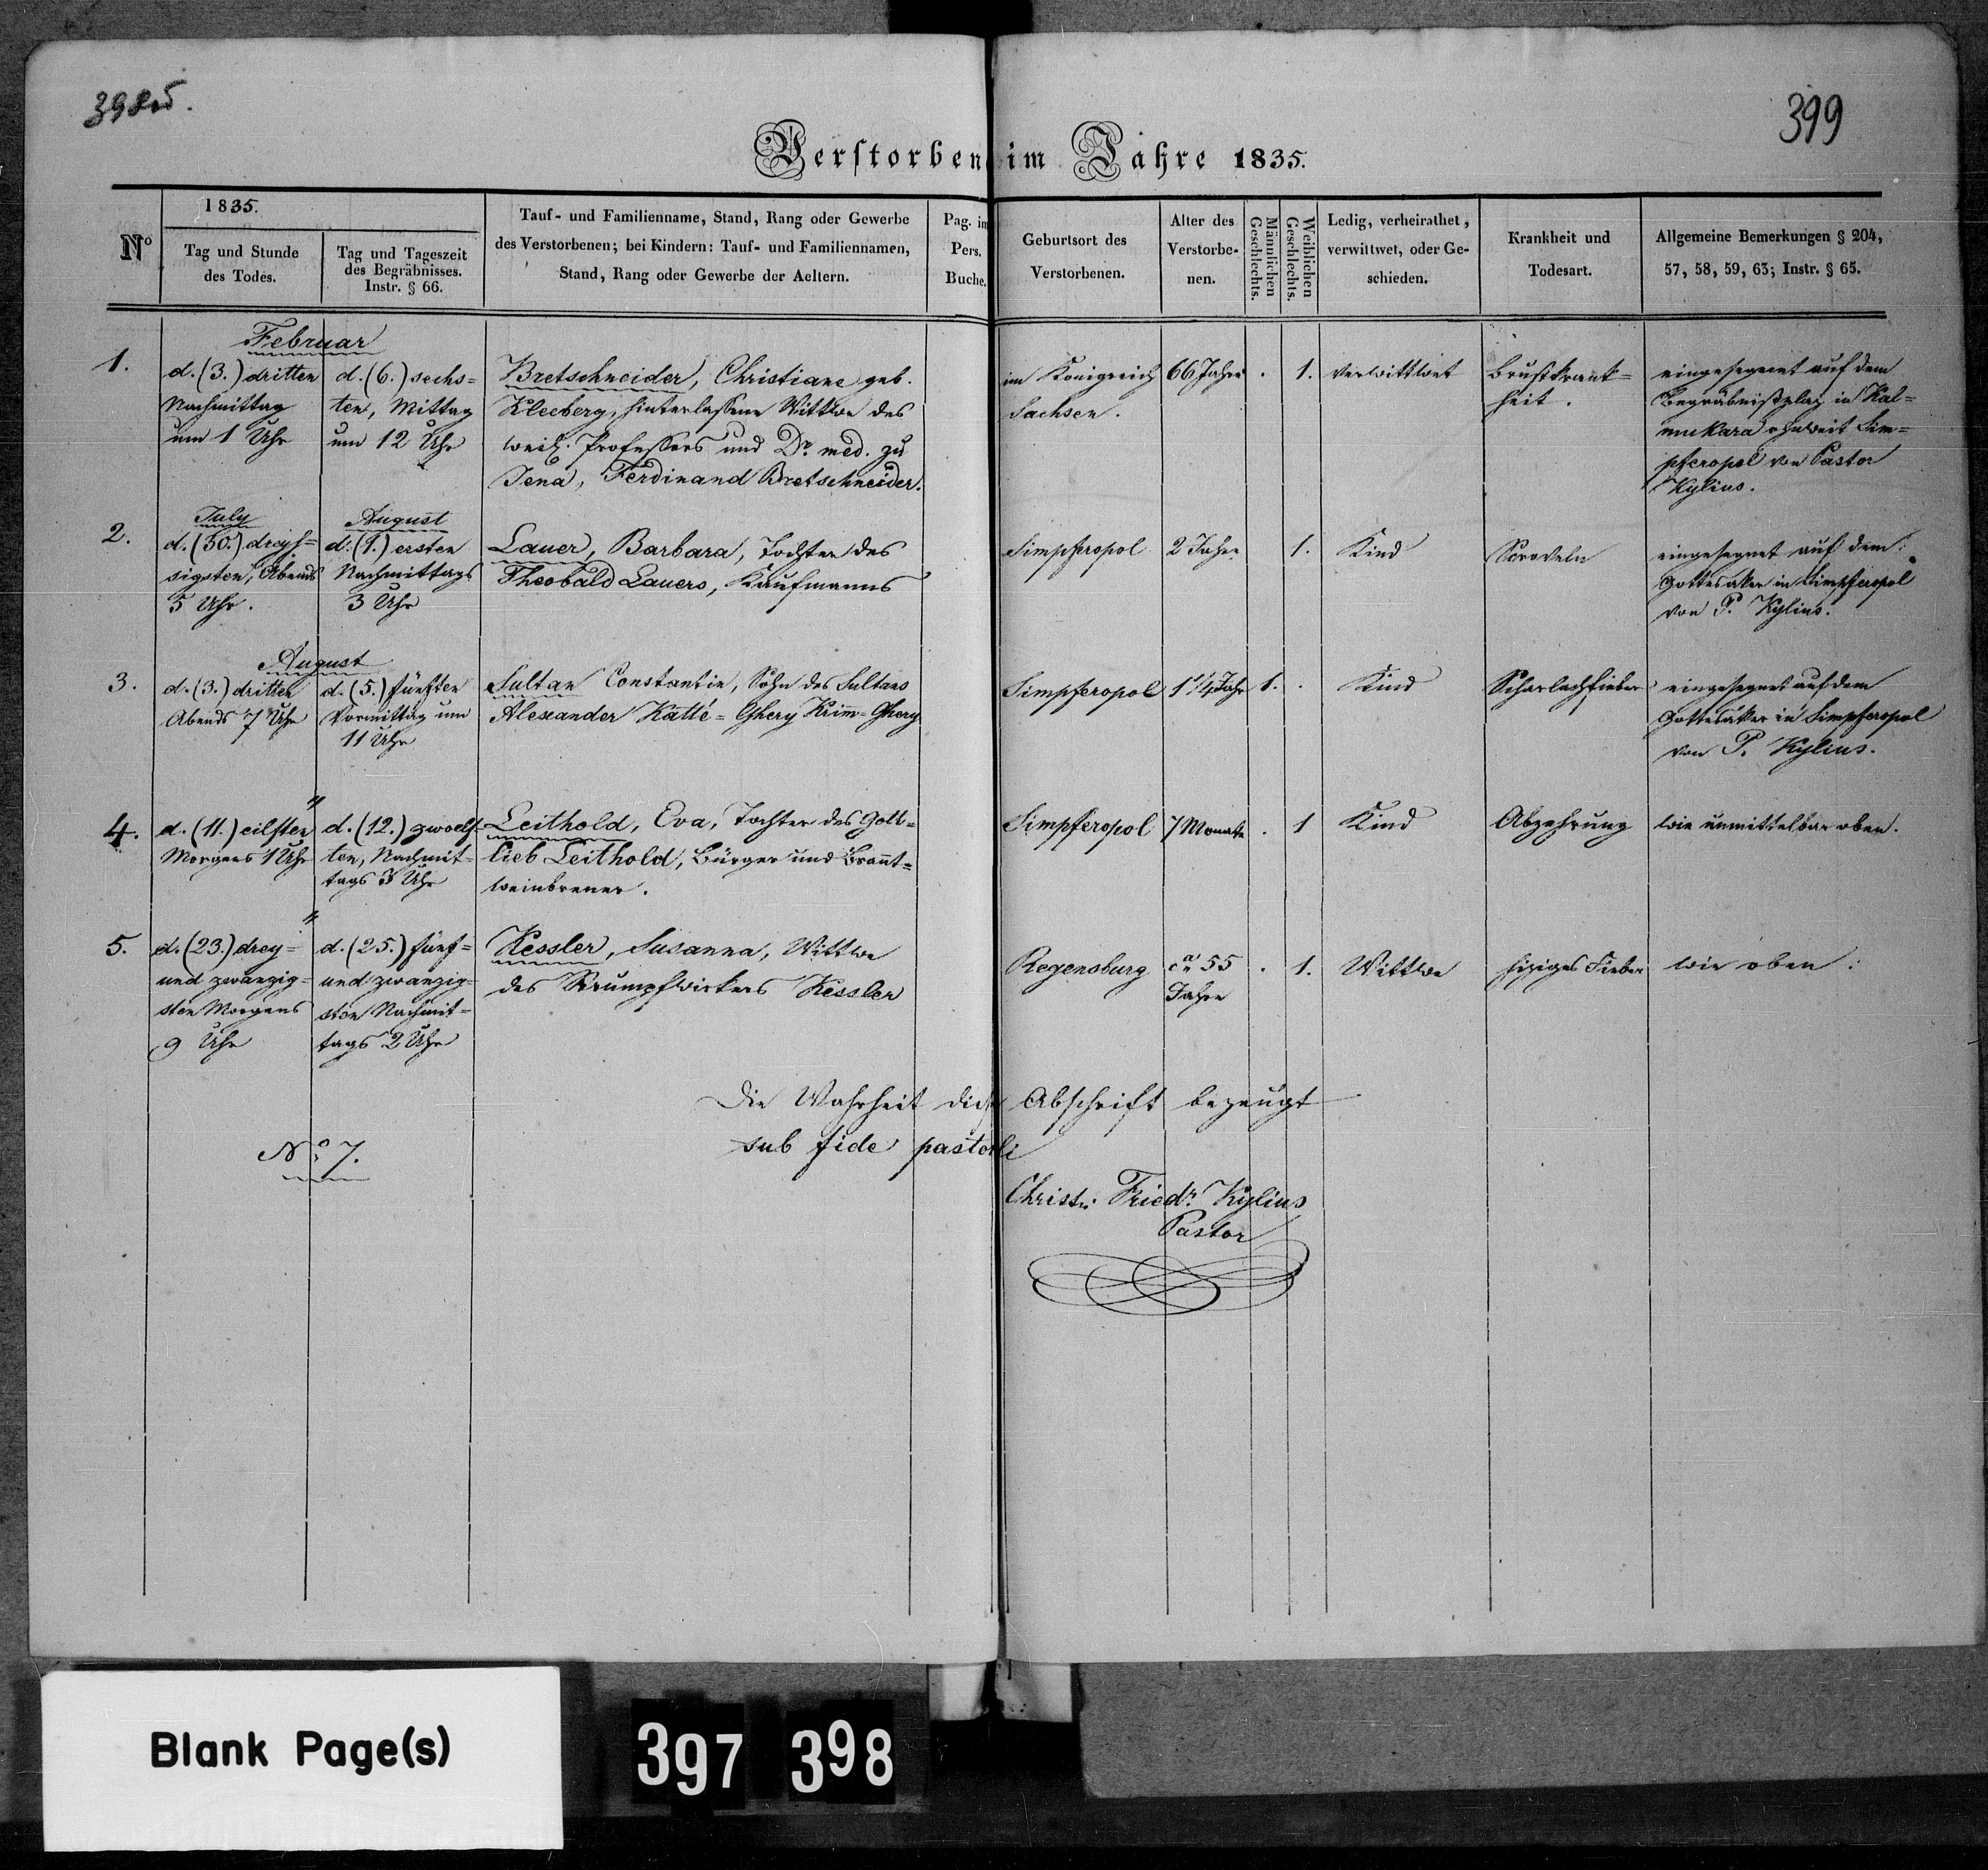 398 об.
399
Verstorbene im Jahre 1835.
Nº
1835.
Tag und Stunde
des Todes.
Tag und Tageszeit
des Begräbnisses.
Instr. § 66.
Tauf- und Familienname, Stand, Rang oder Gewerbe
des Verstorbenen; bei Kindern: Tauf- und Familiennamen,
Stand, Rang oder Gewerbe der Aeltern.
Pag. im
Pers.
Buche.
Geburtsort des
Verstorbenen.
Alter des
Verstorbe-
nen.
Männlichen
Geschlechts.
Weiblichen
Geschlechts.
Ledig, verheirathet,
verwittwet, oder Ge-
schieden.
Krankheit und
Todesart.
Allgemeine Bemerkungen § 204,
57, 58, 59, 63; Instr. § 65.
Februar
1.
d. (3.) dritten
Nachmittag
um 1 Uhr
d. (6.) sechs=
ten, Mittag
um 12 Uhr
Bretschneider, Christiane geb.
Kleeberg, hinterlassene Wittwe des
weil. Professors und Dr. med. zu
Jena, Ferdinand Bretschneider.
im Königreich
Sachsen.
66 Jahre
.
1.
verwittwet
Brustkrank=
heit.
eingesegnet auf dem
Begräbnißplaz in Kal=
mukara ohnweit Sim=
pferopol von Pastor
Kylius.
July
August
2.
d. (30.) dreys=
sigsten, Abends
5 Uhr.
d. (1.) ersten
Nachmittags
3 Uhr
Lauer, Barbara, Tochter des
Theobald Lauers, Kaufmanns
Simpferopol
2 Jahre
1.
Kind
eingesegnet auf dem
Gottesaker in Simpferopol
von P. Kylius.
August
3.
d. (3.) dritten
Abends 7 Uhr
d. (5.) fünften
Vormittag um
11 Uhr
Sultan Constantin, Sohn des Sultans
Alexander Katté=Ghery Krim=Ghery
Simpferopol
1 1/4 Jahr
1.
.
Kind
Scharlachfieber
eingesegnet auf dem
Gottesäker in Simpferopol
von P. Kylius.
"
4.
d. (11.) eilften
Morgens 1 Uhr
d. (12.) zwoelf=
ten, Nachmit=
tags 3 Uhr
Leithold, Eva, Tochter des Gott=
lieb Leithold, Bürger und Brannt=
weinbrener.
Simpferopol
7 Monate
.
1
Kind
Abzehrung
wie unmittelbar oben.
"
5.
d. (23.) drey=
und zwanzig=
sten Morgens
9 Uhr
d. (25.) fünf=
und zwanzig=
sten Nachmit=
tags 2 Uhr
Kessler, Susanna, Wittwe
des Strumpfwirkers Kessler
Regensburg
ca 55
Jahre
.
1.
Wittwe
hiziges Fieber
wie oben:
Die Wahrheit dieser Abschrift bezeugt
sub fide pastorli
Nº 7.
Christ: Friedr. Kylius
Pastor
Blank Page(s)
397 398